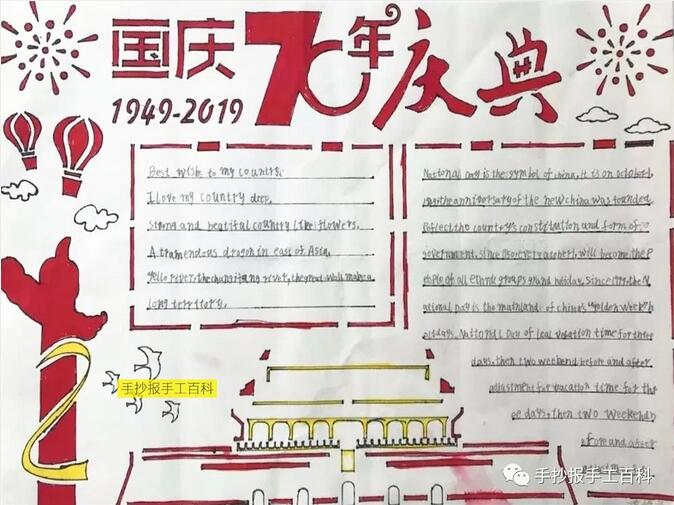 国庆70年庆典
1949-2019
Best wishe to my country:
I love my country deep.
strong and beatiful country like flowers.
A tramendous dragon in east of Asia,
Yello river, the the great wall make a
long territory.
National day is the symbol of china, it is on octoberl,
the anniversary of the new china was founded,
reflect the country's constitution and form of
government, since october1, will become the P
eople of all ethnic groups grand holiday, Since the N
ational Day is the mainland of china's "golden week" h
olidays, National Day of legal vacation time for three
days, then two weekend before and after
adjustment for vacation time for th
ee days, then two weekendb
efore and after
手抄报手工百科
手抄报手工百科